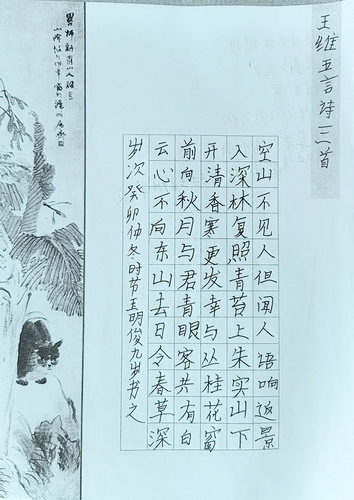 王维五言诗三首
空山不见人但闻人语响返景
入深林复照青苔上朱实山下
开清香寒更发幸与丛桂花窗
前向秋月与君青眼客共有白
云心不向东山去日令春草深
岁次癸卯仲冬时节王明俊九岁书之
師新羅山人